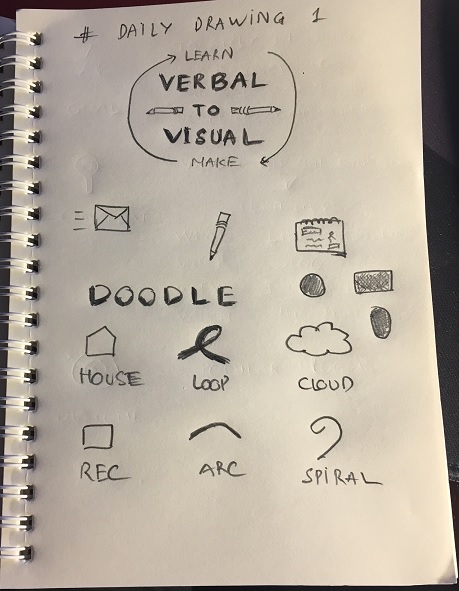 # DAILY DRAWING 1
LEARN
VERBAL
TO
VISUAL
MAKE
DOODLE
HOUSE LOOP CLOUD
REC ARC SPIRAL